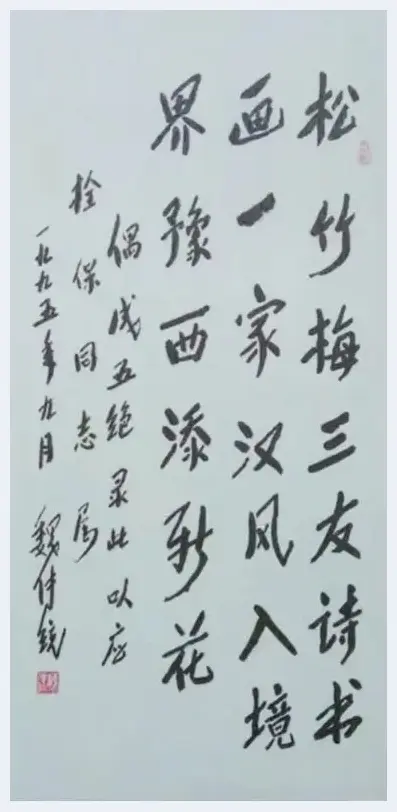 松竹梅三友诗书
画一家汉风入境
界豫西添新花
偶成五绝录此以应
拴保同志属
一九九五年九月 魏传统